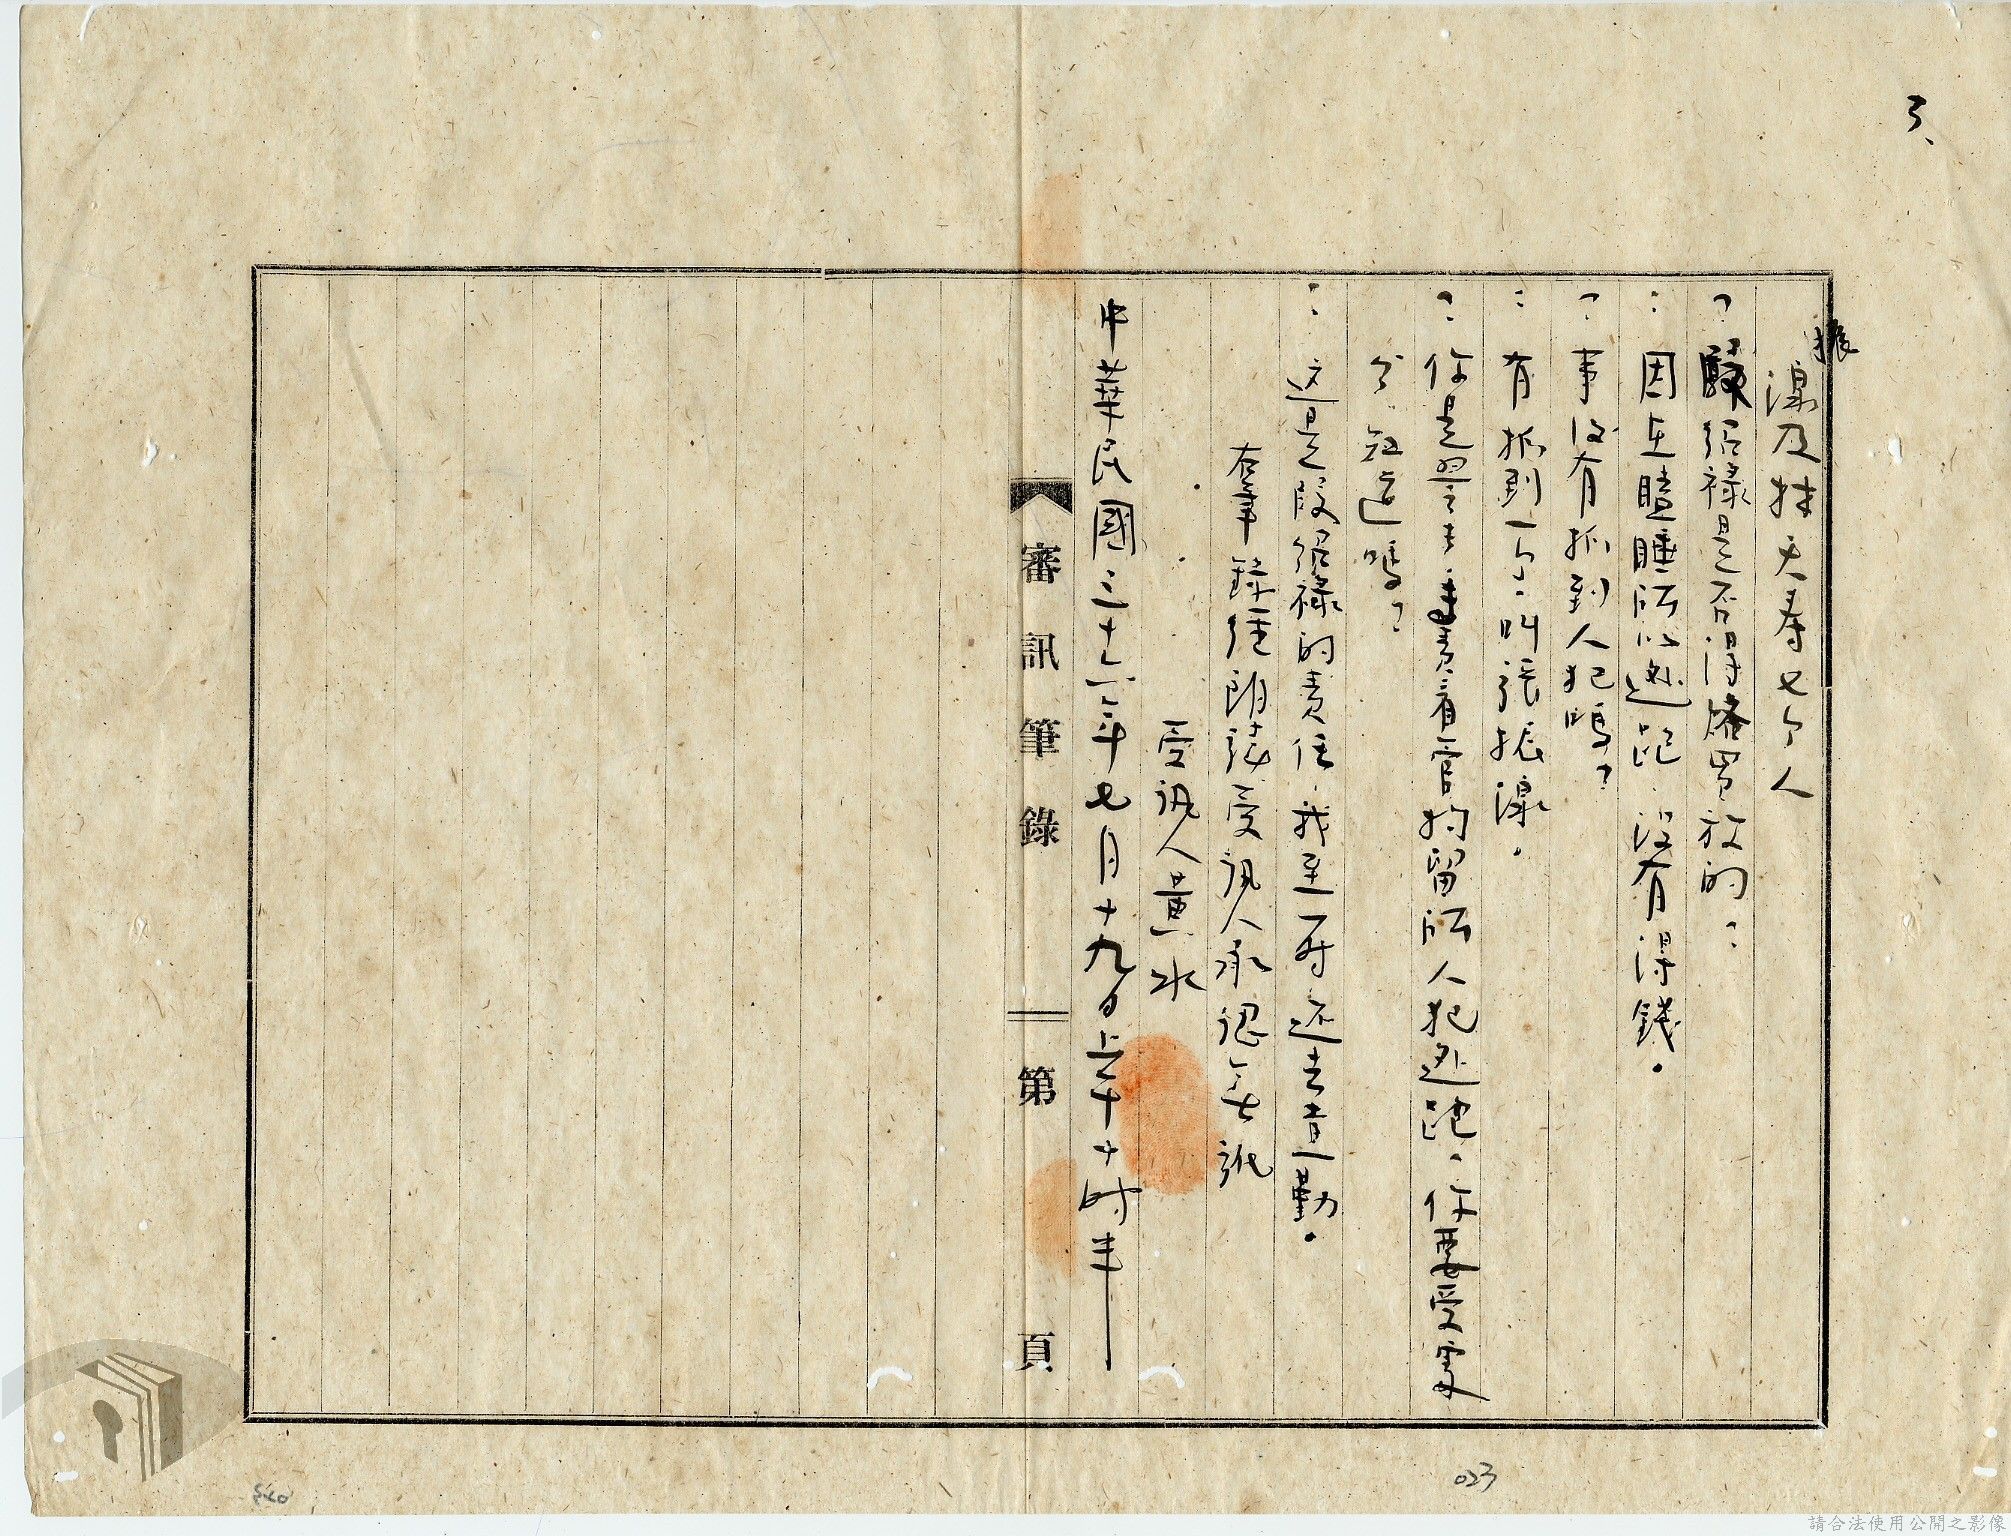 3、
振
濠及林天壽七个人
？：段紹祿是否得賄買放的？：
：因在瞌睡所以逃跑．没有得錢。
？：事後有抓到人犯嗎？
：有抓到一个．叫張振濠。
？：你是警士．負責看管拘留所人犯逃跑．你要受處
分．知道嗎？
：这是段紹祿的責任．我至一時还去追勤。
右筆錄經朗讀受訊人承認無訛
受訊人黃水
中華民國三十六年七月十九日上午十時半
審訊筆錄
第
頁
023
請合法使用公開之影像